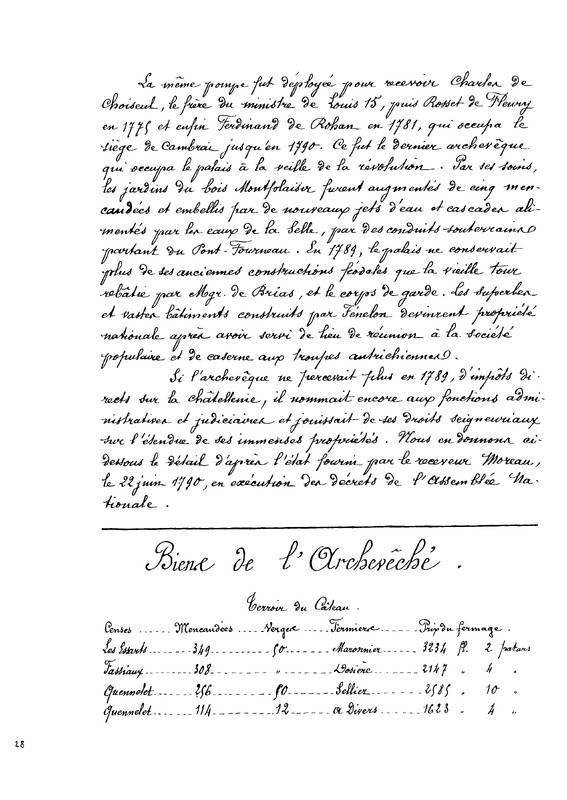 La même pompe fut déployée pour recevoir Charles de
Choiseul, le frère du ministre de Louis 15, puis Rosset de Fleury
en 1775 et enfin Ferdinand de Rohan en 1781, qui occupa le
siège de Cambrai jusqu'en 1790. Ce fut le dernier archevêque
qui occupa le palais à la veille de la révolution. Par ses soins,
les jardins du bois Montplaisir furent augmentés de cinq men-
caudées et embellis par de nouveaux jets d'eau et cascades ali-
mentés par les eaux de la Selle, par des conduits souterrains
partant du Pont-Fourneau. En 1789, le palais ne conservait
plus de ses anciennes constructions féodales que la vieille tour
rebâtie par Mgr. de Brias, et le corps de garde. Les superbes
et vastes bâtiments construits par Fénelon devinrent propriété
nationale après avoir servi de lieu de réunion à la société
populaire et de caserne aux troupes autrichiennes.
Si l'archevêque ne percevait plus en 1789, d'impôts di-
rects sur la châtellenie, il nommait encore aux fonctions admi-
nistratives et judiciaires et jouissait de ses droits seigneuriaux
sur l'étendue de ses immenses propriétés. Nous en donnons ci-
dessous le détail d'après l'état fourni par le receveur Moreau,
le 22 juin 1790, en exécution des décrets de l'Assemblée Na-
tionale.
Biens de l'Archevêché.
Terroir du Câteau.
Censes ...... Mencaudées ...... Verges ...... Fermiers ...... Prix du fermage.
Les Essarts ...... 349 ...... 50 ...... Maronnier ...... 3234 fl. 2 patars
Tassiaux ...... 308 ...... " ...... Dosière ...... 2147 " 4 "
Quennelet ...... 256 ...... 50 ...... Sellier ...... 2585 " 10 "
Quennelet ...... 114 ...... 12 ...... à Divers ...... 1623 " 4 "
28